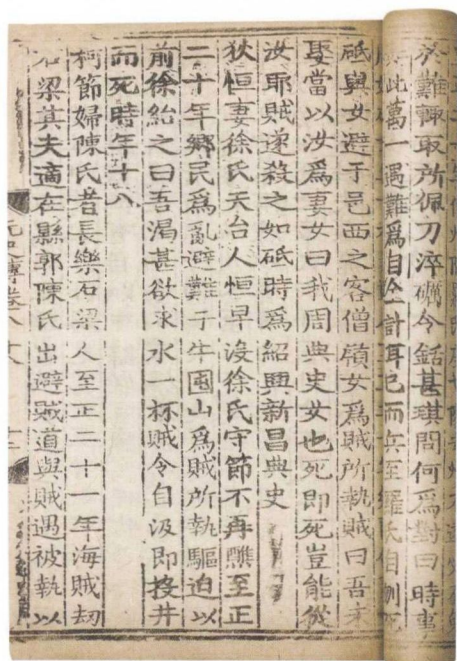 於難輒取所佩刀淬礪令銛甚琪問何為對曰時事
此萬一遇難為自全計耳已而兵至羅氏自刎死
砥與女避于邑西之客僧嶺女為賊所執賊曰吾未
娶當以汝為妻女曰我周典史女也死即死豈能從
汝耶賊遂殺之如砥時為紹興新昌典史
狄恒妻徐氏天台人恒早沒徐氏守節不再醮至正
二十年鄉民為亂避難于牛囤山為賊所執驅迫以
前徐紿之曰吾渴甚欲求水一杯賊令自汲即投井
而死時年十八
柯節婦陳氏昔長樂石梁人至正二十一年海賊刼
石梁其夫適在縣郭陳氏出避賊道與賊遇被執以